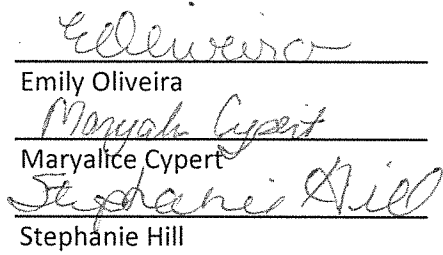 EOliveira
Emily Oliveira
Maryalice Cypert
Maryalice Cypert
Stephanie Hill
Stephanie Hill